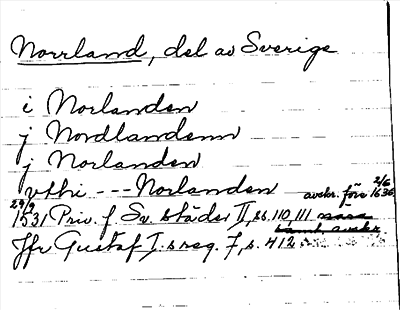 Norrland, del av Sverige
i Norlanden
j Nordlandenn
j Norlanden
vthi --- Norlanden avskr. före 2/6 1636
29/9 1531 Priv. f. Sv. städer II, ss. 110, 111
Jfr Gustaf I:s reg. 7, s. 412